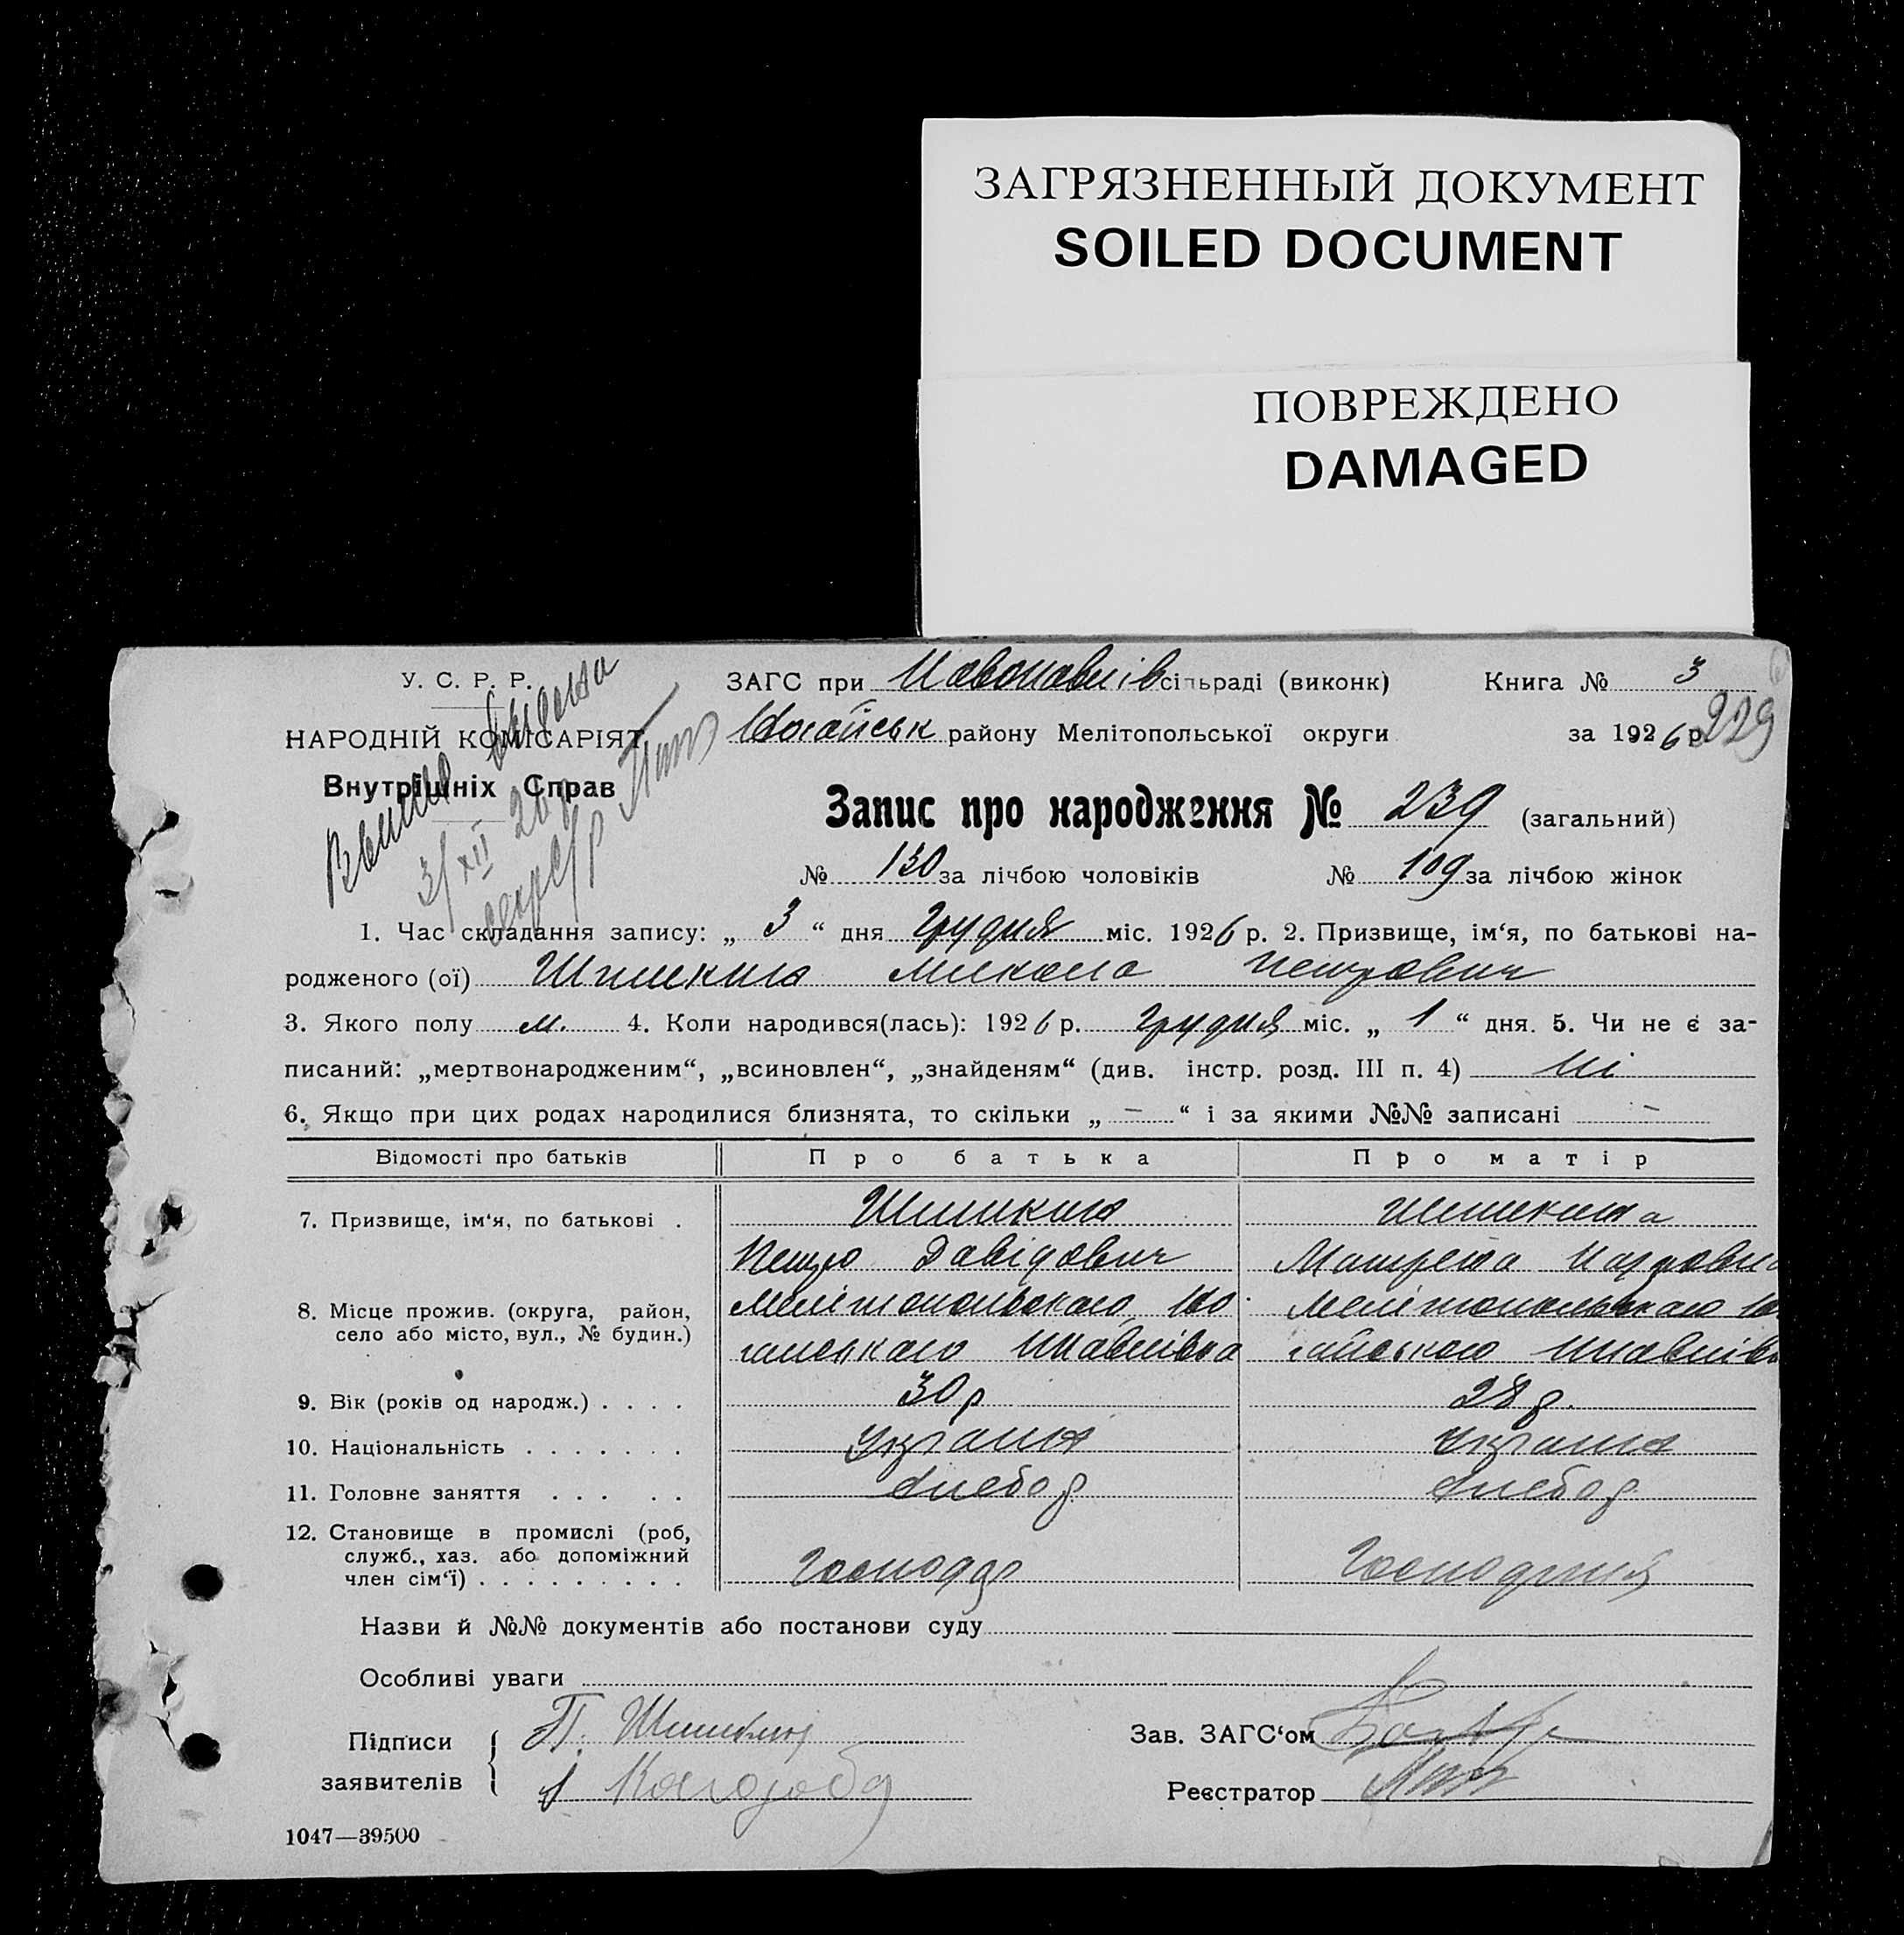 ЗАГРЯЗНЕННЫЙ ДОКУМЕНТ
SOILED DOCUMENT
ПОВРЕЖДЕНО
DAMAGED
У. С. Р. Р.
НАРОДНІЙ КОМІСАРІЯТ
Внутрішніх Справ
3/XII 26
ЗАГС при Новопавлів сільраді (виконк) Книга № 3
Ногайськ району Мелітопольської округи за 1926 р.
229
Запис про народження № 239 (загальний)
№ 130 за лічбою чоловіків № 109 за лічбою жінок
1. Час складання запису: „ 3 “ дня Грудня міс. 1926 р. 2. Призвище, ім‘я, по батькові на-
родженого (ої) Шишкин Микола Петрович
3. Якого полу м. 4. Коли народився(лась): 1926 р. грудня міс. „ 1 “ дня. 5. Чи не є за-
писаний: „мертвонародженим“, „всиновлен“, „знайденям“ (див. інстр. розд. III п. 4) ні
6. Якщо при цих родах народилися близнята, то скільки „ — “ і за якими №№ записані —
Відомості про батьків Про батька Про матір
7. Призвище, ім‘я, по батькові . Шишкин Шишкина
Петро Давідович Мотрена
8. Місце прожив. (округа, район, Мелітопольского Но- Мелітопольского Но
село або місто, вул., № будин.) гайського Нпавлівка гайського Нпавлівк
9. Вік (років од народж.) . . . . 30 р 28 р.
10. Національність . . . . . . . Українц Українц
11. Головне заняття . . . . . Хлебор Хлебор
12. Становище в промислі (роб,
служб., хаз. або допоміжний
член сім‘ї) . . . . . . . . . Господар Господиня
Назви й №№ документів або постанови суду
Особливі уваги
Підписи П. Шишкин Зав. ЗАГС‘ом
заявителів Реєстратор
1047—39500